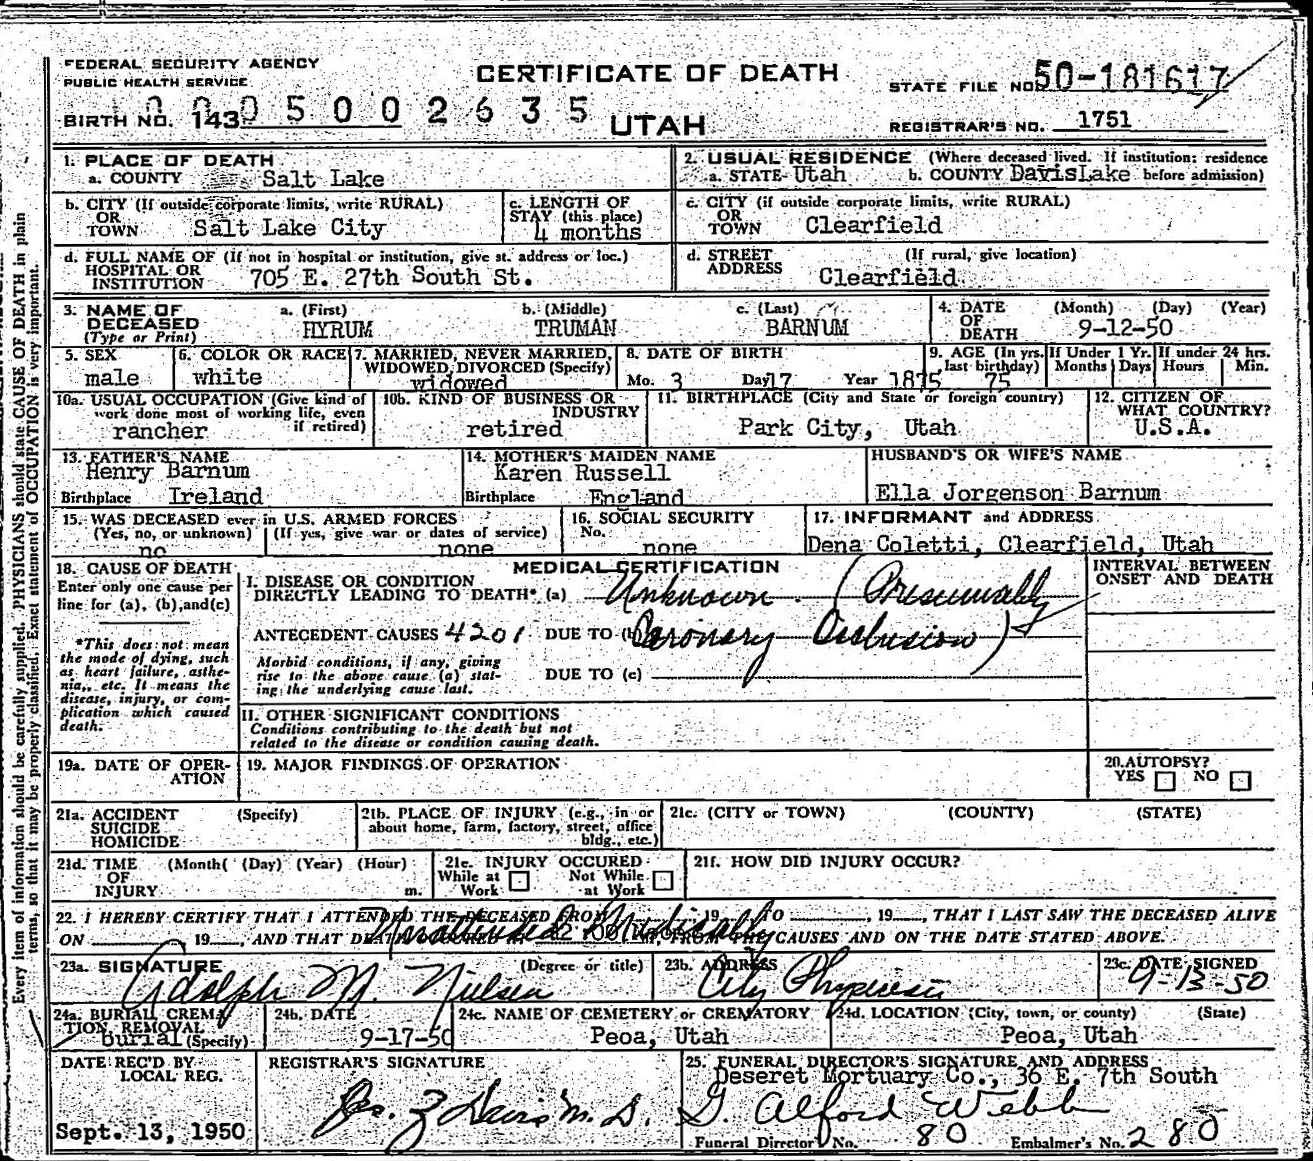 FEDERAL SECURITY AGENCY
PUBLIC HEALTH SERVICE
CERTIFICATE OF DEATH
STATE FILE NO. 50-181617
0005002635
BIRTH NO. 143
UTAH
REGISTRAR'S NO. 1751
1. PLACE OF DEATH
a. COUNTY Salt Lake
2. USUAL RESIDENCE (Where deceased lived. If institution: residence
a. STATE Utah b. COUNTY Davis Lake before admission)
b. CITY (If outside corporate limits, write RURAL)
OR
TOWN Salt Lake City
c. LENGTH OF
STAY (this place)
4 months
c. CITY (if outside corporate limits, write RURAL)
OR
TOWN Clearfield
d. FULL NAME OF (If not in hospital or institution, give st. address or loc.)
HOSPITAL OR
INSTITUTION 705 E. 27th South St.
d. STREET (If rural, give location)
ADDRESS Clearfield
3. NAME OF
DECEASED
(Type or Print)
a. (First)
HYRUM
b. (Middle)
TRUMAN
c. (Last)
BARNUM
4. DATE (Month) (Day) (Year)
OF
DEATH 9-12-50
5. SEX
male
6. COLOR OR RACE
white
7. MARRIED, NEVER MARRIED,
WIDOWED, DIVORCED (Specify)
widowed
8. DATE OF BIRTH
Mo. 3 Day 17 Year 1875
9. AGE (In yrs.
last birthday)
75
If Under 1 Yr.
Months Days
If under 24 hrs.
Hours Min.
10a. USUAL OCCUPATION (Give kind of
work done most of working life, even
if retired)
rancher
10b. KIND OF BUSINESS OR
INDUSTRY
retired
11. BIRTHPLACE (City and State or foreign country)
Park City, Utah
12. CITIZEN OF
WHAT COUNTRY?
U.S.A.
13. FATHER'S NAME
Henry Barnum
Birthplace Ireland
14. MOTHER'S MAIDEN NAME
Karen Russell
Birthplace England
HUSBAND'S OR WIFE'S NAME
Ella Jorgenson Barnum
15. WAS DECEASED ever in U.S. ARMED FORCES
(Yes, no, or unknown) (If yes, give war or dates of service)
no none
16. SOCIAL SECURITY
No.
none
17. INFORMANT and ADDRESS
Dena Coletti, Clearfield, Utah
18. CAUSE OF DEATH
Enter only one cause per
line for (a), (b), and (c)
*This does not mean
the mode of dying, such
as heart failure, asthe-
nia, etc. It means the
disease, injury, or com-
plication which caused
death.
MEDICAL CERTIFICATION
I. DISEASE OR CONDITION
DIRECTLY LEADING TO DEATH* (a) Unknown. (Presumably
ANTECEDENT CAUSES 4201 DUE TO (b) Coronary Occlusion)
Morbid conditions, if any, giving
rise to the above cause (a) stat-
ing the underlying cause last.
DUE TO (c)
INTERVAL BETWEEN
ONSET AND DEATH
II. OTHER SIGNIFICANT CONDITIONS
Conditions contributing to the death but not
related to the disease or condition causing death.
19a. DATE OF OPER-
ATION
19. MAJOR FINDINGS OF OPERATION
20. AUTOPSY?
YES NO
21a. ACCIDENT (Specify)
SUICIDE
HOMICIDE
21b. PLACE OF INJURY (e.g., in or
about home, farm, factory, street, office
bldg., etc.)
21c. (CITY or TOWN) (COUNTY) (STATE)
21d. TIME (Month( (Day) (Year) (Hour)
OF
INJURY m.
21e. INJURY OCCURED
While at Not While
Work at Work
21f. HOW DID INJURY OCCUR?
22. I HEREBY CERTIFY THAT I ATTENDED THE DECEASED FROM 19 TO , 19 , THAT I LAST SAW THE DECEASED ALIVE
Unattended Medically
ON 19 , AND THAT DEATH OCCURRED AT M., FROM THE CAUSES AND ON THE DATE STATED ABOVE.
23a. SIGNATURE (Degree or title)
Adolph M. Nielsen
23b. ADDRESS
City Physician
23c. DATE SIGNED
9-13-50
24a. BURIAL CREMA
TION REMOVAL
burial (Specify)
24b. DATE
9-17-50
24c. NAME OF CEMETERY or CREMATORY
Peoa, Utah
24d. LOCATION (City, town, or county) (State)
Peoa, Utah
DATE REC'D BY
LOCAL REG.
Sept. 13, 1950
REGISTRAR'S SIGNATURE
Jas. Z Davis M. D.
25. FUNERAL DIRECTOR'S SIGNATURE AND ADDRESS
Deseret Mortuary Co., 36 E. 7th South
G. Alford Webb
Funeral Director No. 80 Embalmer's No. 280
Every item of information should be carefully supplied. PHYSICIANS should state CAUSE OF DEATH in plain
terms, so that it may be properly classified. Exact statement of OCCUPATION is very important.